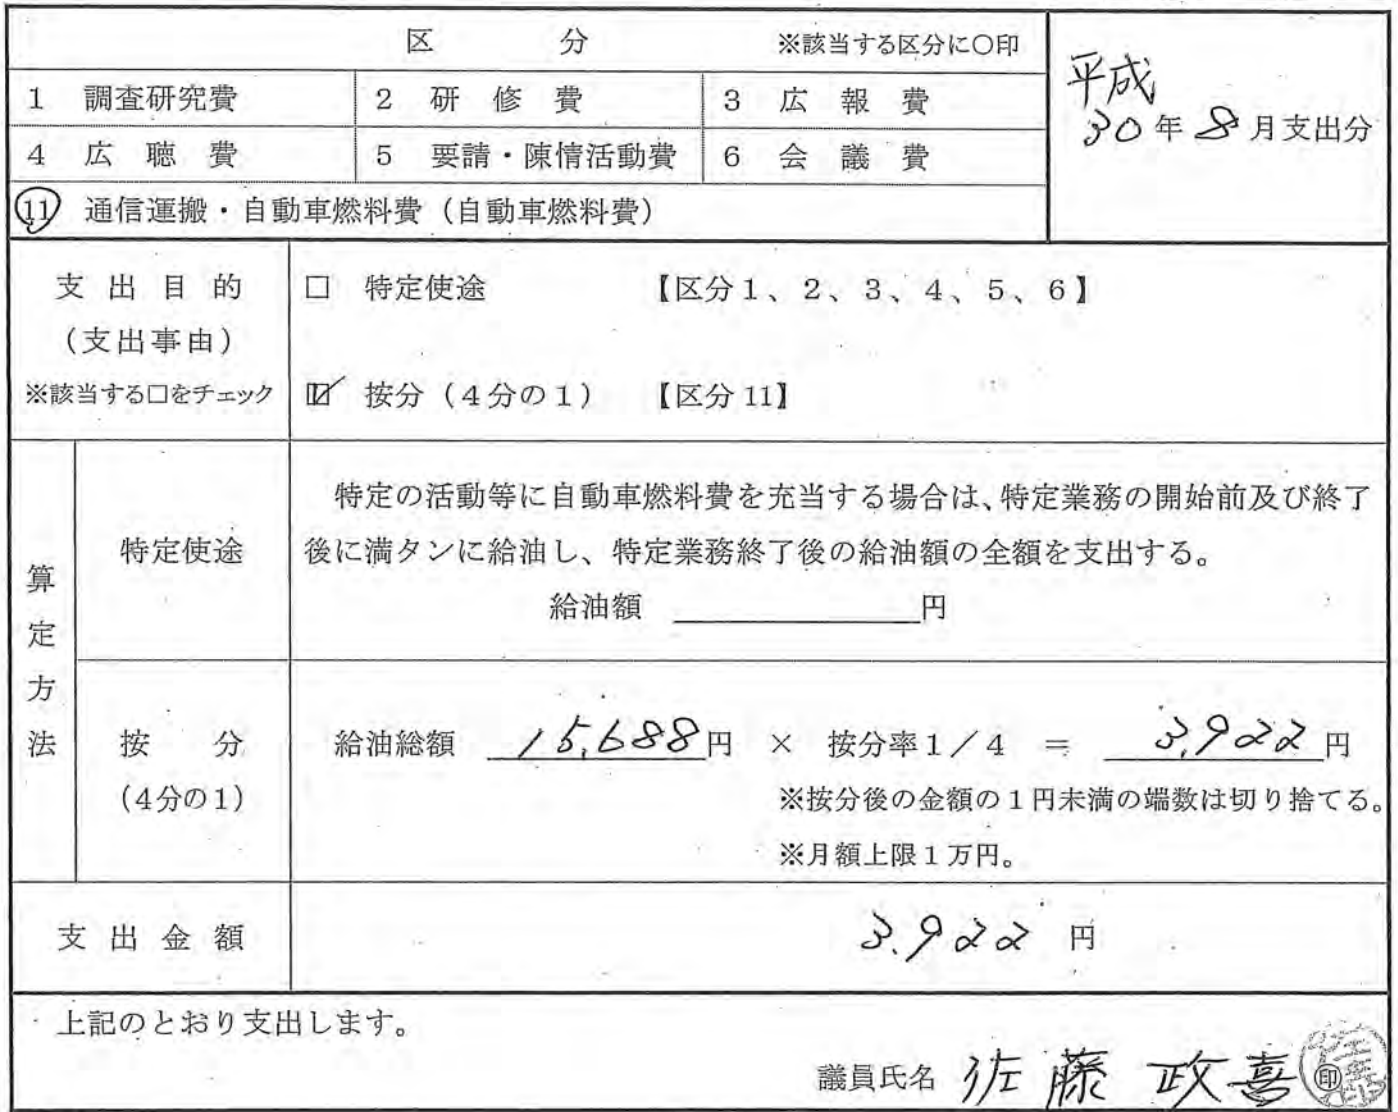 区　分　※該当する区分に○印
平成
30年8月支出分
1　調査研究費　2　研修費　3　広報費
4　広聴費　5　要請・陳情活動費　6　会議費
11　通信運搬・自動車燃料費（自動車燃料費）
支出目的
（支出事由）
※該当する□をチェック
□　特定使途　【区分1、2、3、4、5、6】
☑　按分（4分の1）　【区分11】
算定方法
特定使途
特定の活動等に自動車燃料費を充当する場合は、特定業務の開始前及び終了
後に満タンに給油し、特定業務終了後の給油額の全額を支出する。
給油額　円
按分
（4分の1）
給油総額　15,688円　×　按分率1／4　＝　3,922円
※按分後の金額の1円未満の端数は切り捨てる。
※月額上限1万円。
支出金額　3,922円
上記のとおり支出します。
議員氏名　佐藤　政喜　印